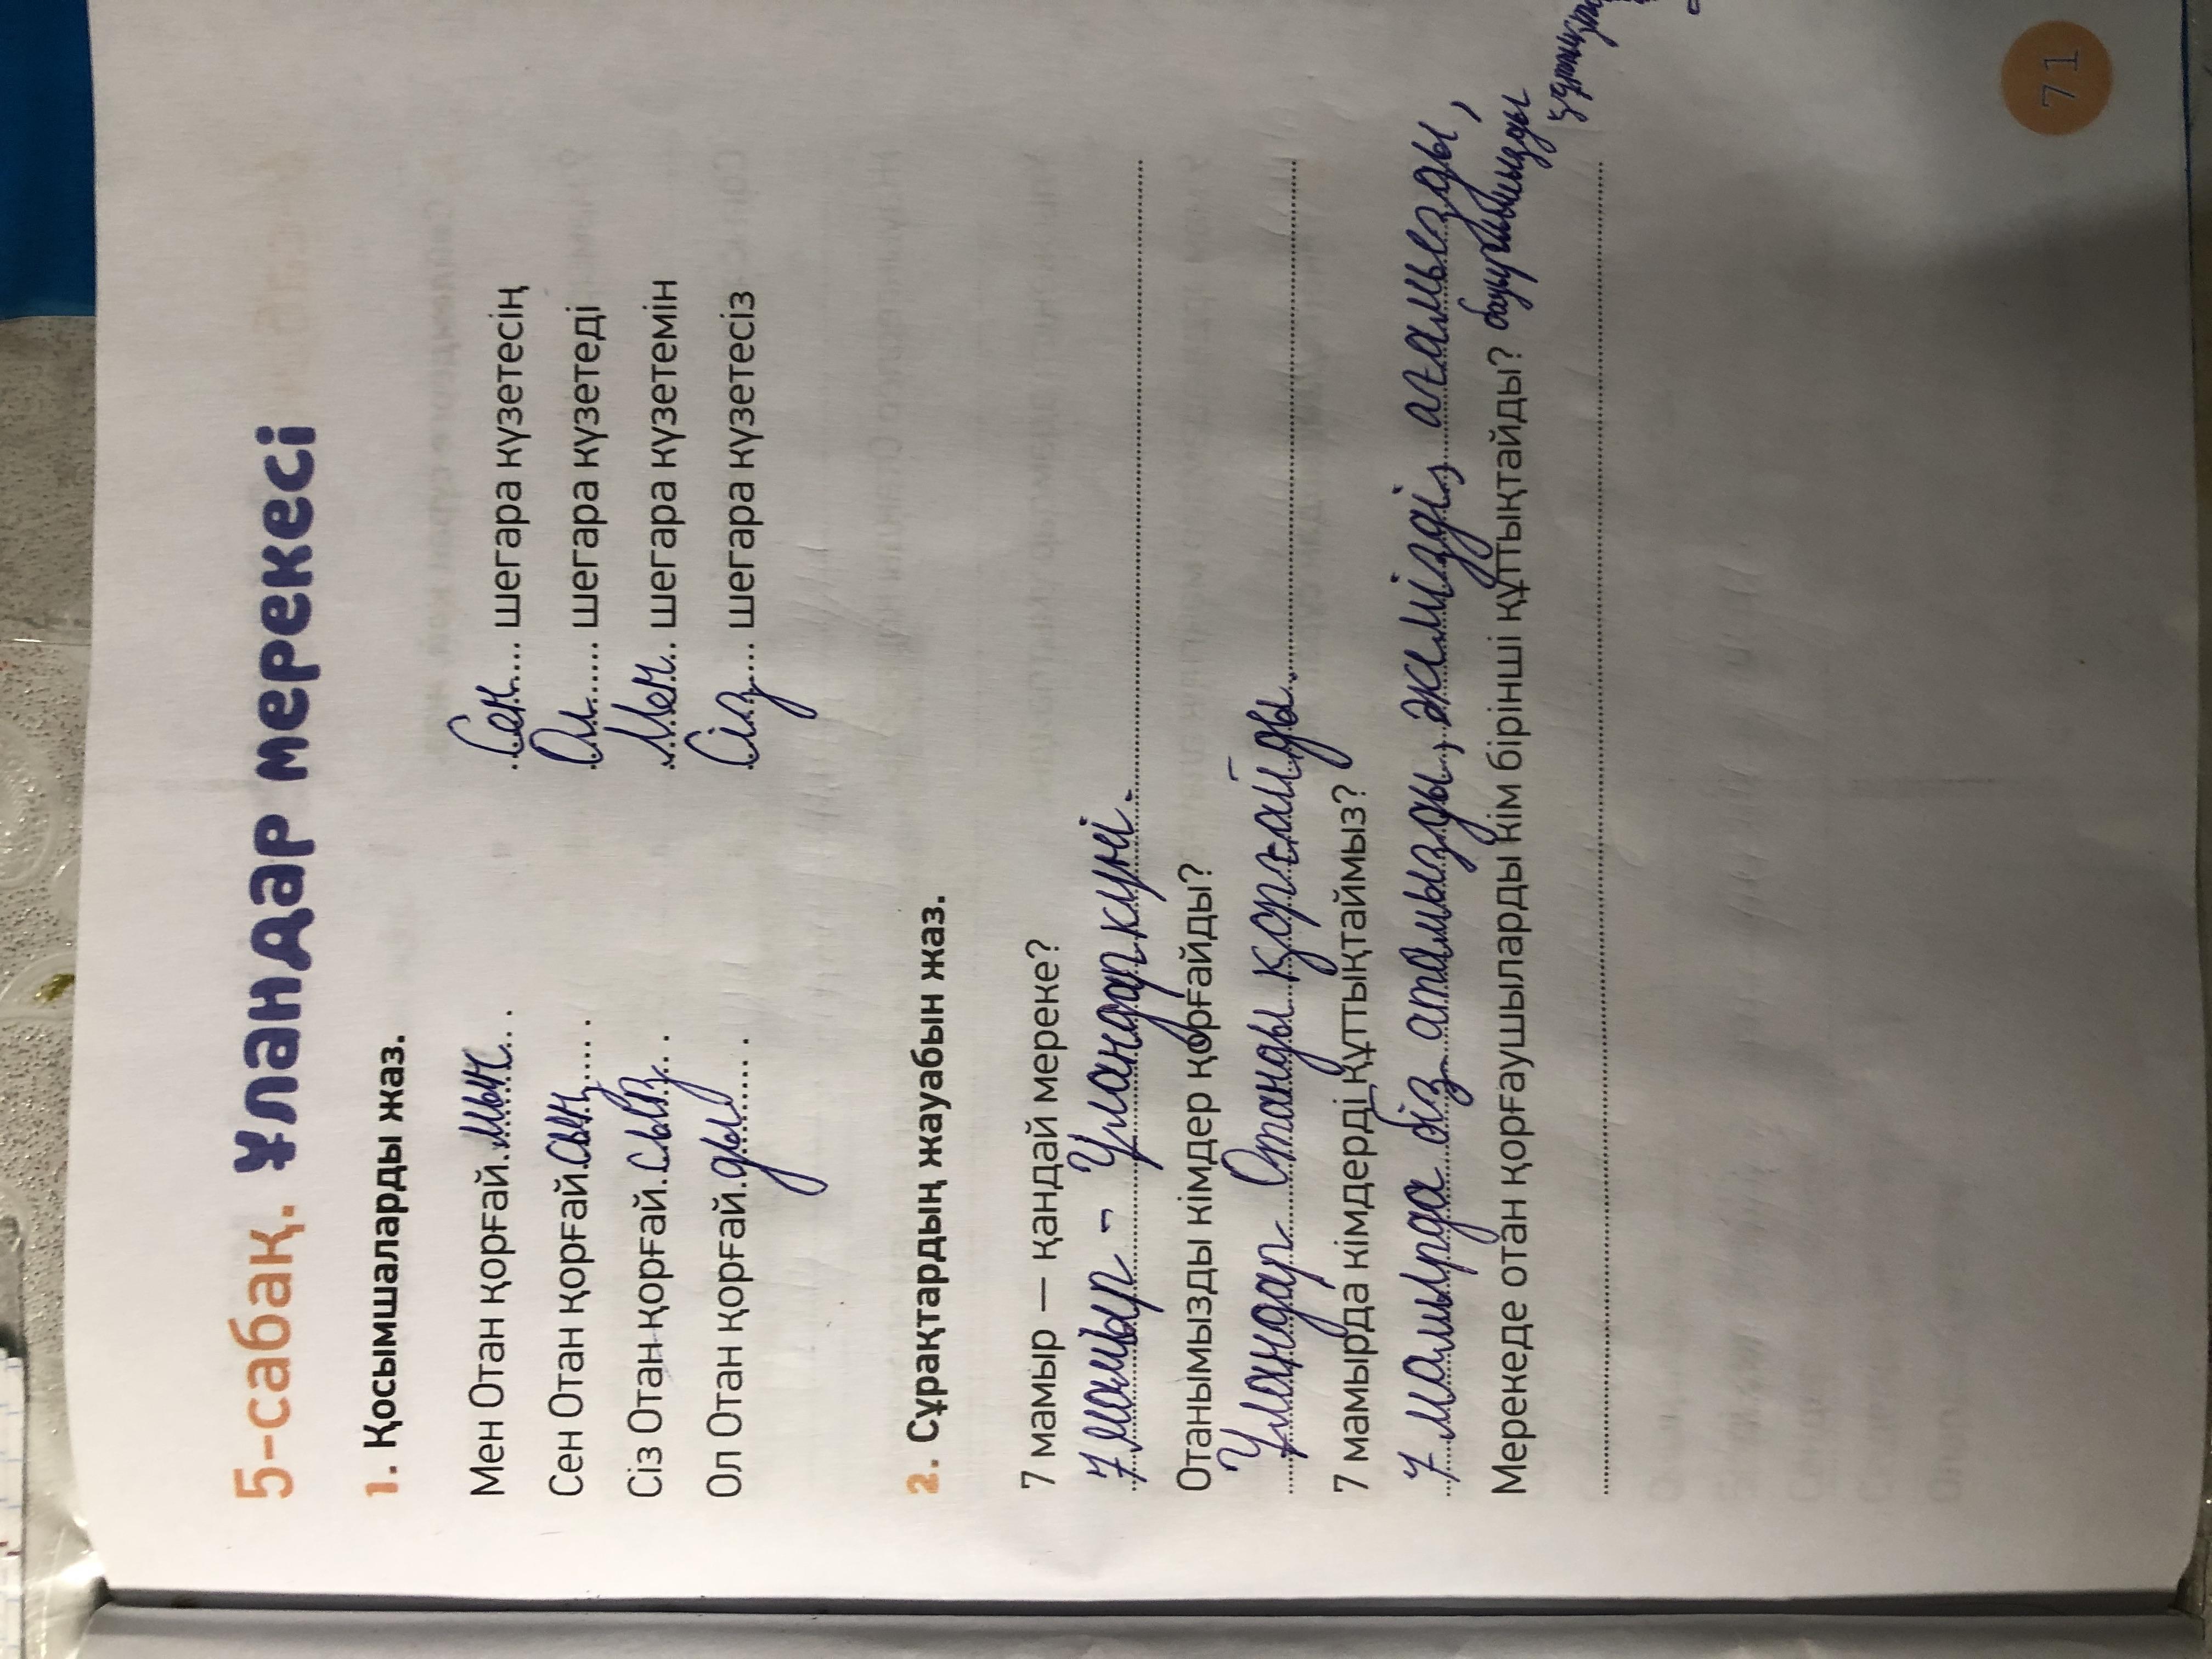 5-сабақ. Ұландар мерекесі
1. Қосымшаларды жаз.
Мен Отан қорғай.мын... Сен.... шегара күзетесің
Сен Отан қорғай.сың..... Ол..... шегара күзетеді
Сіз Отан қорғай.сыз... Мен.. шегара күзетемін
Ол Отан қорғай.ды...... Сіз.... шегара күзетесіз
2. Сұрақтардың жауабын жаз.
7 мамыр — қандай мереке?
7 мамыр - Ұландар күні.
Отанымызды кімдер қорғайды?
Ұландар Отанды қорғайды
7 мамырда кімдерді құттықтаймыз?
7 мамырда біз атамызды, әкемізді, ағамызды,
бауырымызды
Мерекеде отан қорғаушыларды кім бірінші құттықтайды?
71